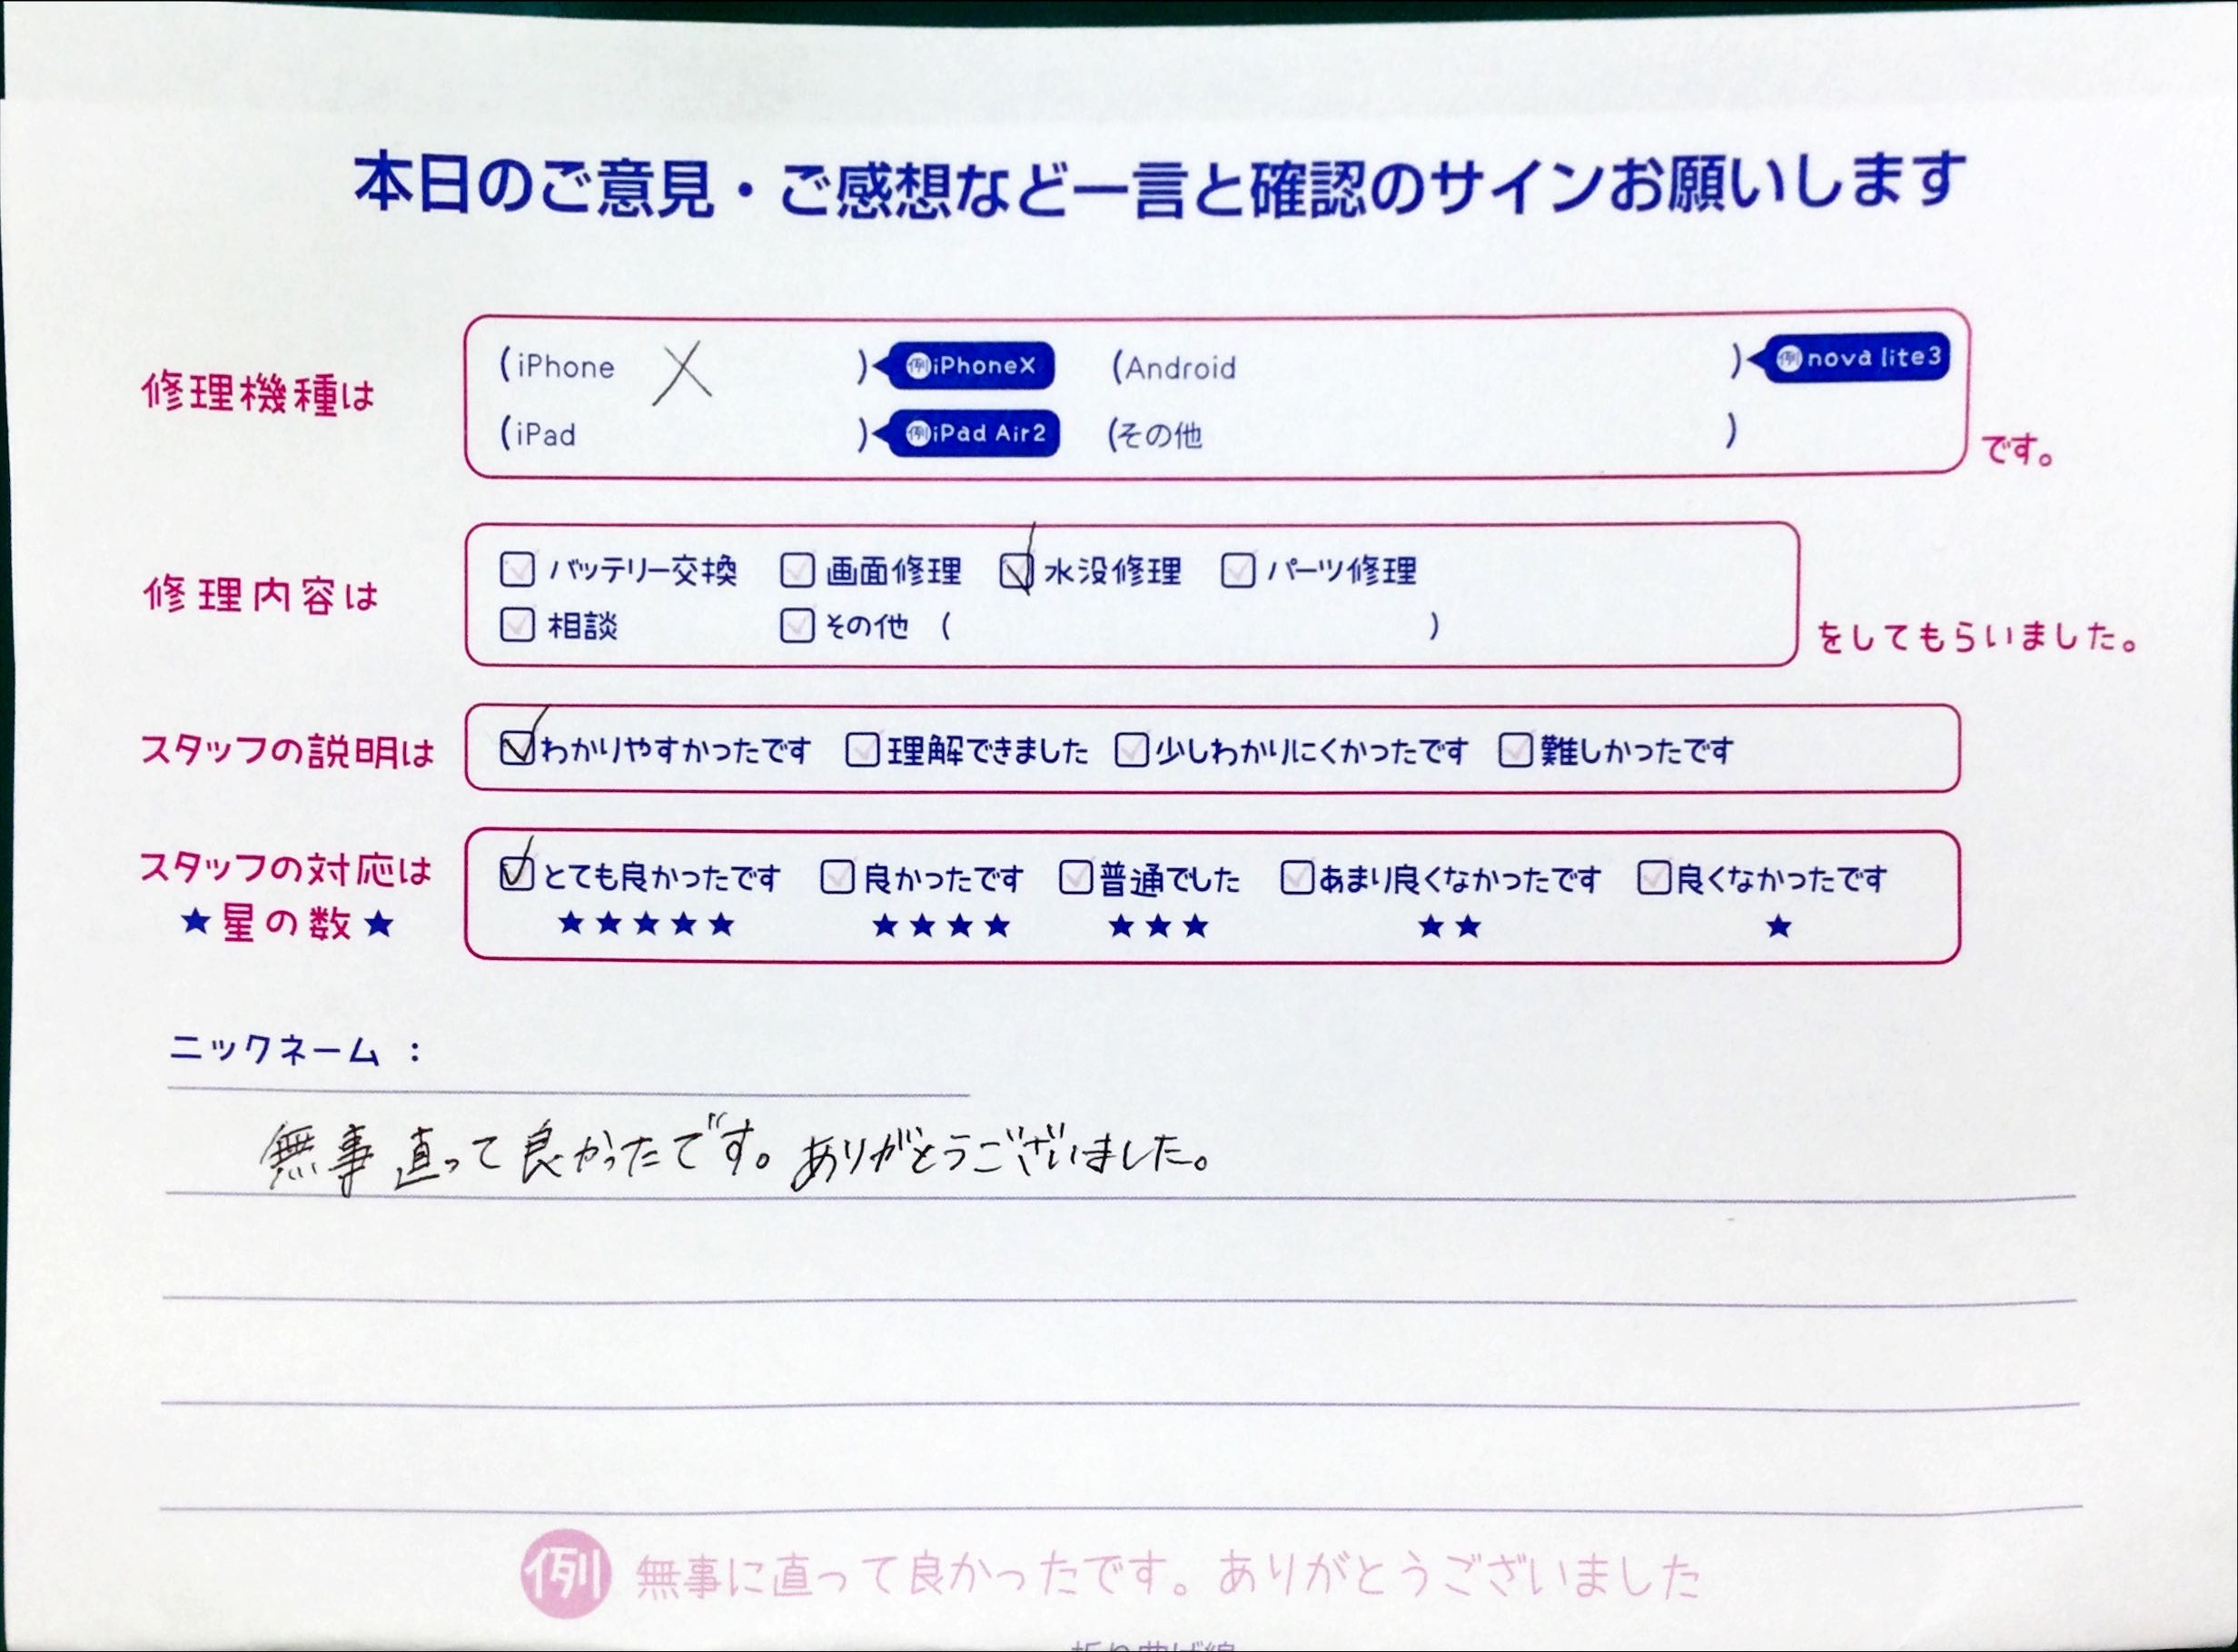 本日のご意見・ご感想など一言と確認のサインお願いします
修理機種は (iPhone X ) 例iPhoneX (Android ) 例nova lite3
(iPad ) 例iPad Air2 (その他 ) です。
修理内容は バッテリー交換 画面修理 水没修理 パーツ修理
相談 その他 ( ) をしてもらいました。
スタッフの説明は わかりやすかったです 理解できました 少しわかりにくかったです 難しかったです
スタッフの対応は とても良かったです 良かったです 普通でした あまり良くなかったです 良くなかったです
★星の数★ ★★★★★ ★★★★ ★★★ ★★ ★
ニックネーム :
無事直って良かったです。ありがとうございました。
例 無事に直って良かったです。ありがとうございました